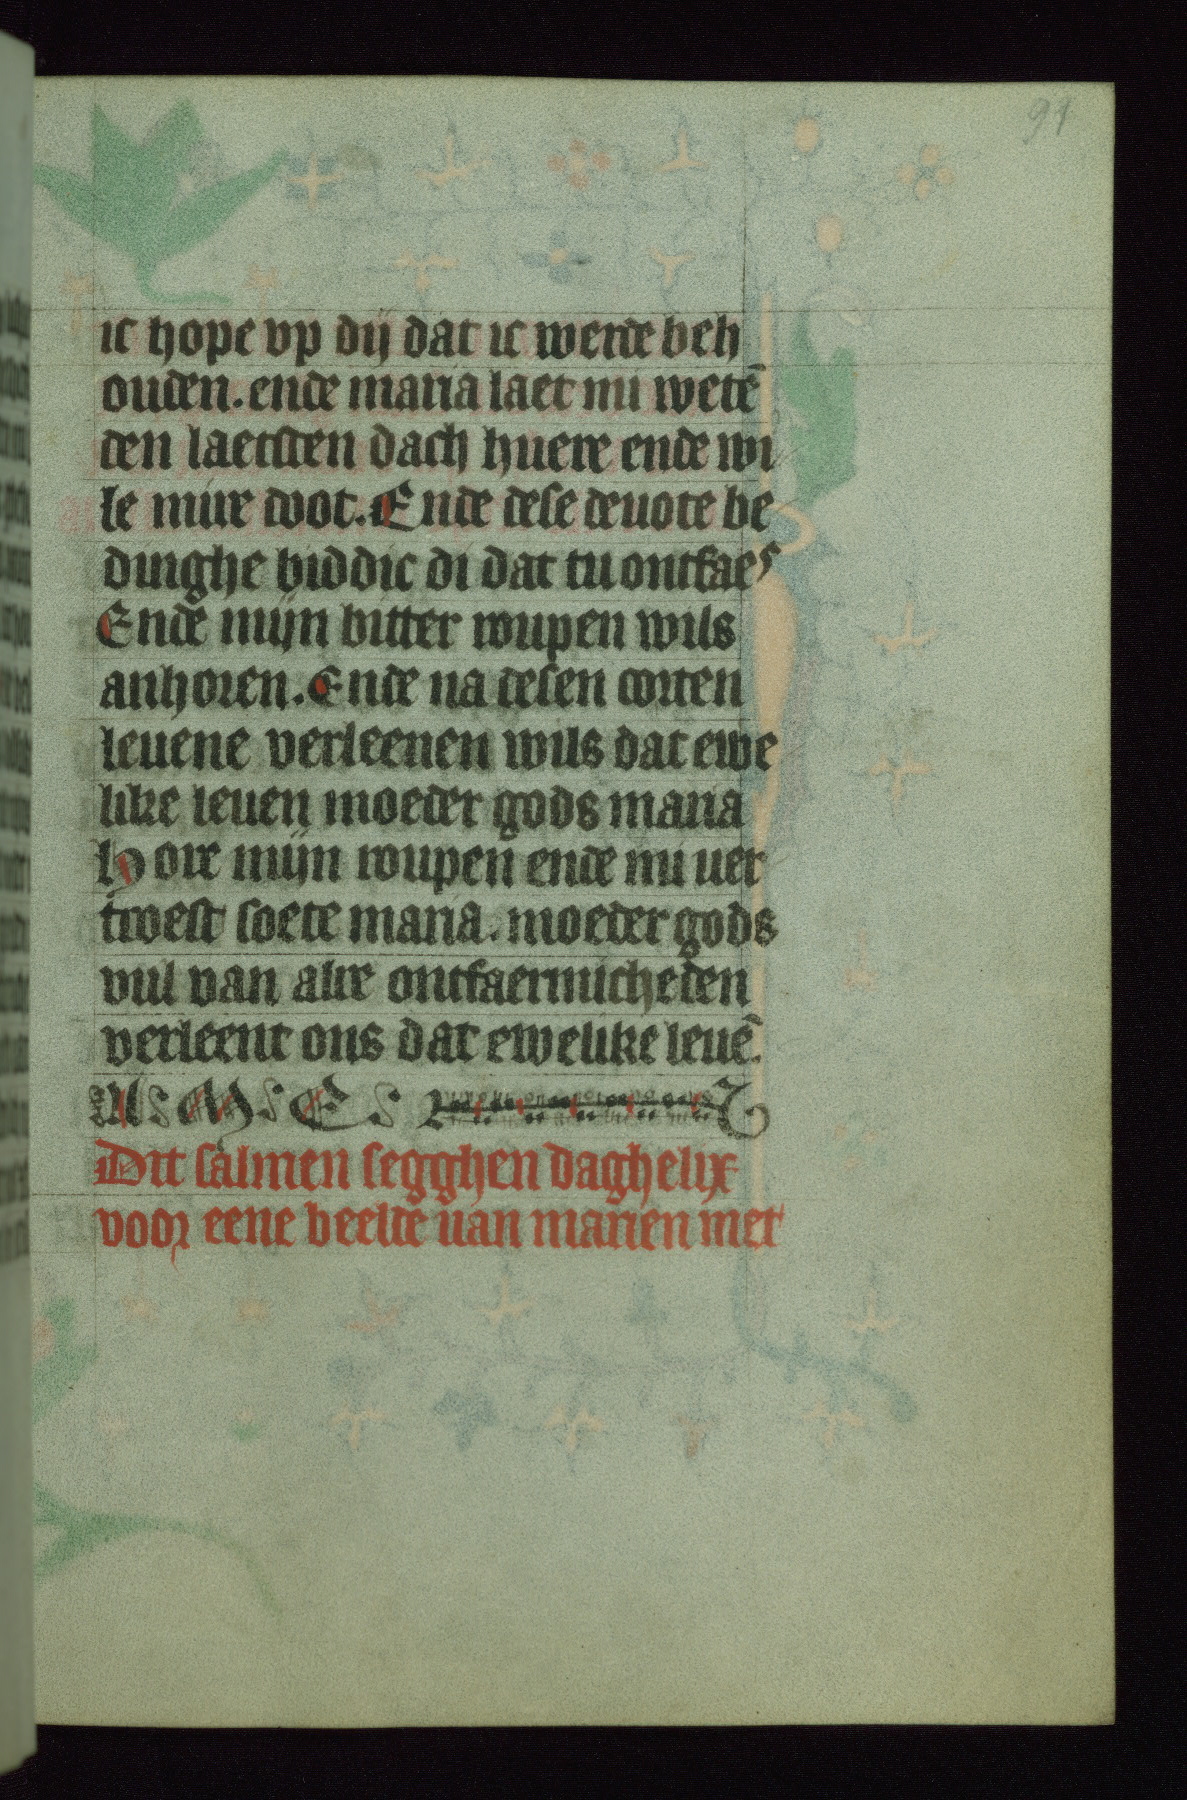 91
ic hope vp dij dat ic werde beh
ouden. ende maria laet mi wetē
den laetsten dach huere ende wi
le mire doot. Ende dese deuote be
dinghe biddic di dat tu ontfaes
Ende mijn bitter roupen wils
anhoren. Ende na desen corten
leuene verleenen wils dat ewe
like leuen moeder gods maria
hore mijn roupen ende mi ver
troest soete maria. moeder gods
vul van alre ontfaermicheden
verleent ons dat ewelike leuē.
A M E
Dit salmen segghen daghelix
voor eene beelde uan marien met